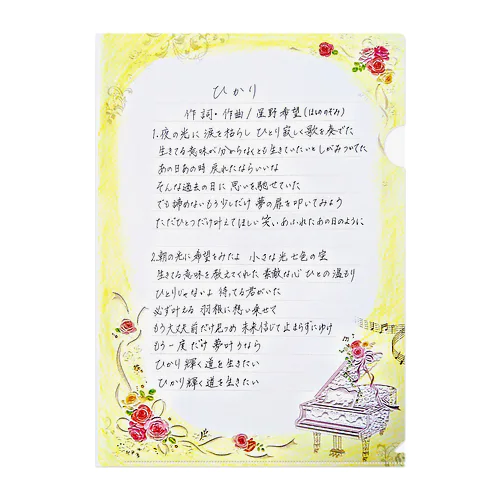 ひかり
作詞・作曲/星野希望(ほしののぞみ)
1.夜の光に 涙を枯らし ひとり寂しく歌を奏でた
生きてる意味が分からなくとも生きていたいと しがみつてた
あの日あの時 戻れたならいいな
そんな過去の日に 思いを馳せていた
でも諦めないもう少しだけ 夢の扉を叩いてみよう
ただひとつだけ叶えてほしい 笑いあふれたあの日のように
2.朝の光に希望をみたよ 小さな光 七色の空
生きてる意味を教えてくれた 素敵な心 ひとの温もり
ひとりじゃないよ 待ってる君がいた
必ず叶える 羽根に想い乗せて
もう大丈夫 前だけ見つめ 未来信じて 止まらずにゆけ
もう一度だけ 夢叶うなら
ひかり輝く道を生きたい
ひかり輝く道を生きたい